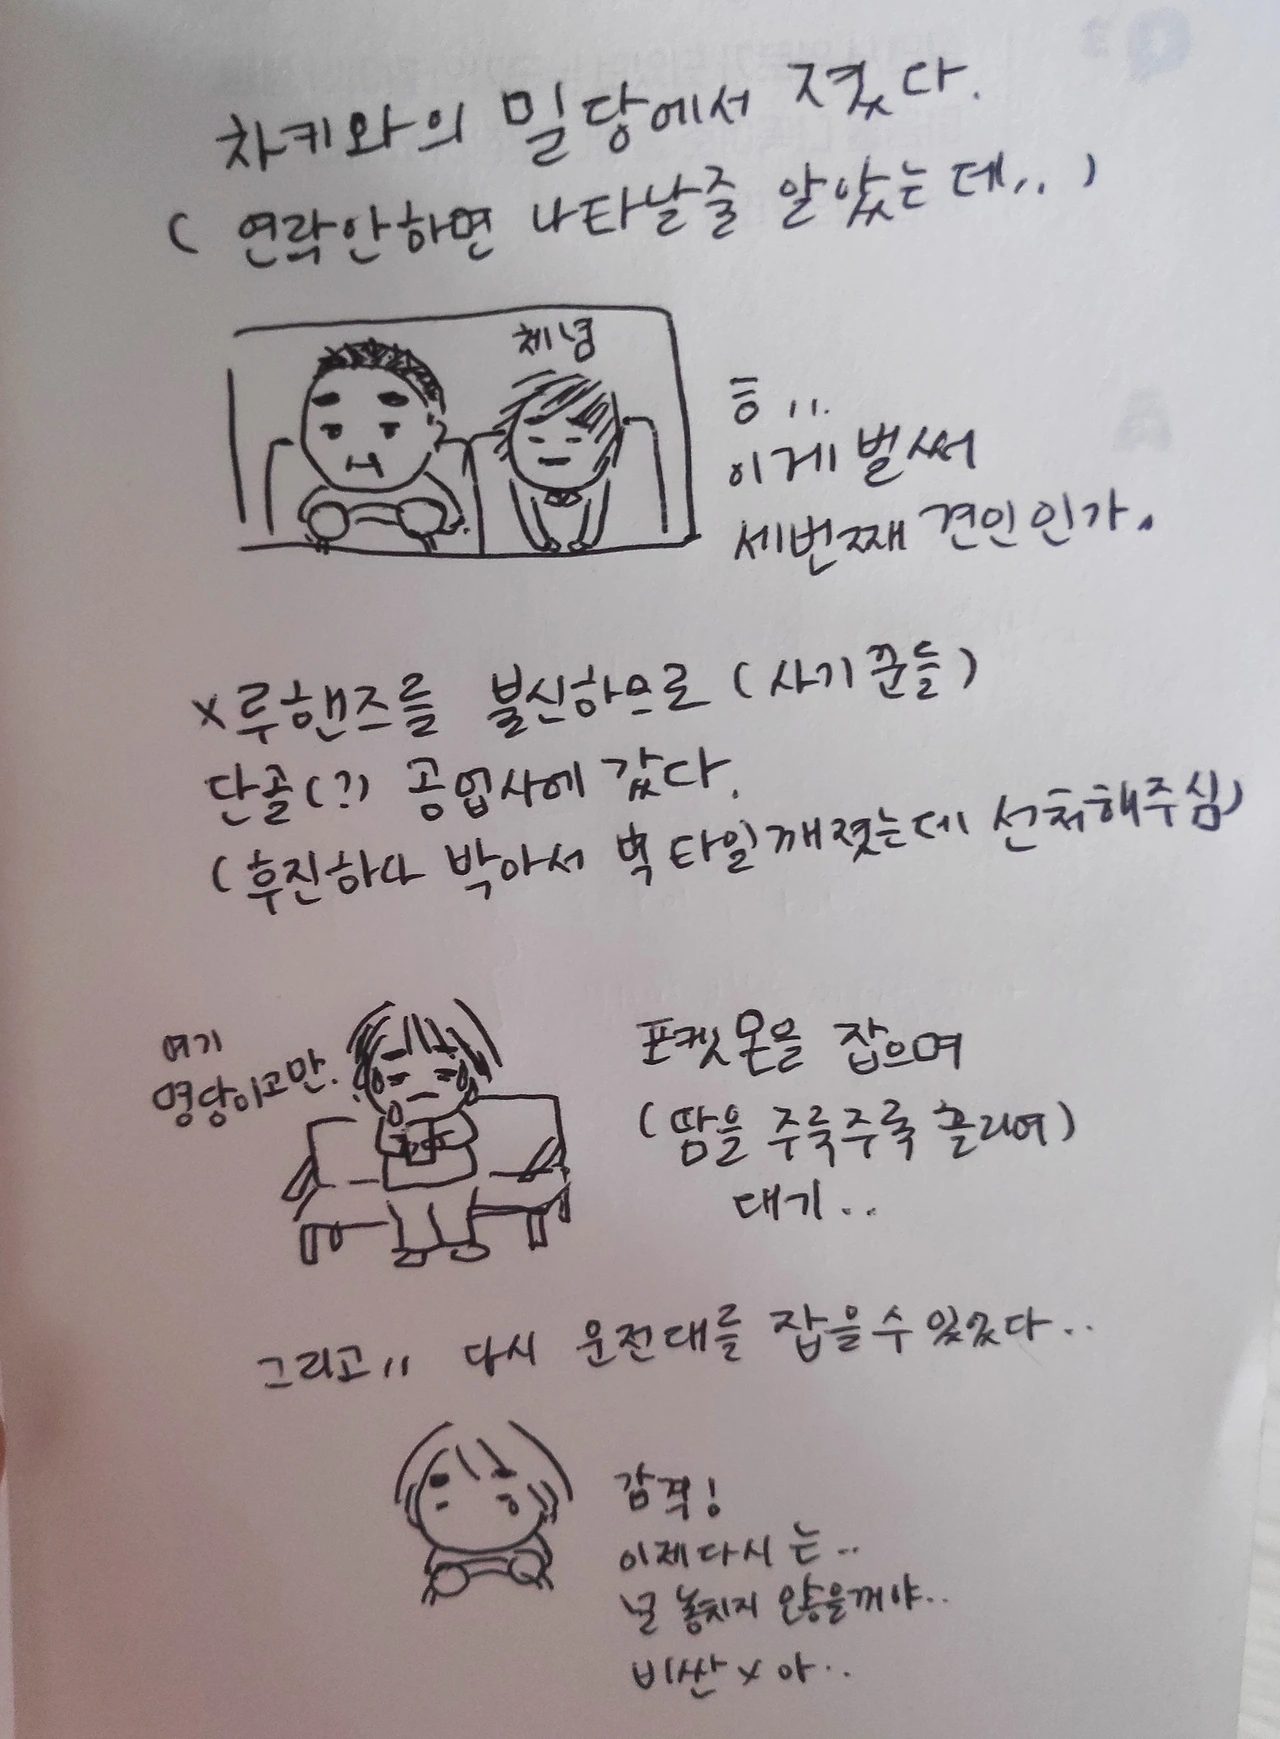 차키와의 밀당에서 졌다.
( 연락안하면 나타날줄 알았는데.. )
체념
흠..
이게벌써
세번째 견인인가.
x루핸즈를 불신하므로 (사기꾼들)
단골(?) 공업사에 갔다.
(후진하다 박아서 벽타일깨졌는데 선처해주심)
여기
명당이고만.
포켓몬을 잡으며
(땀을 주륵주륵 흘리며)
대기..
그리고,, 다시 운전대를 잡을수있었다..
감격!
이제다시 는..
널 놓치지 않을꺼야..
비싼x아..